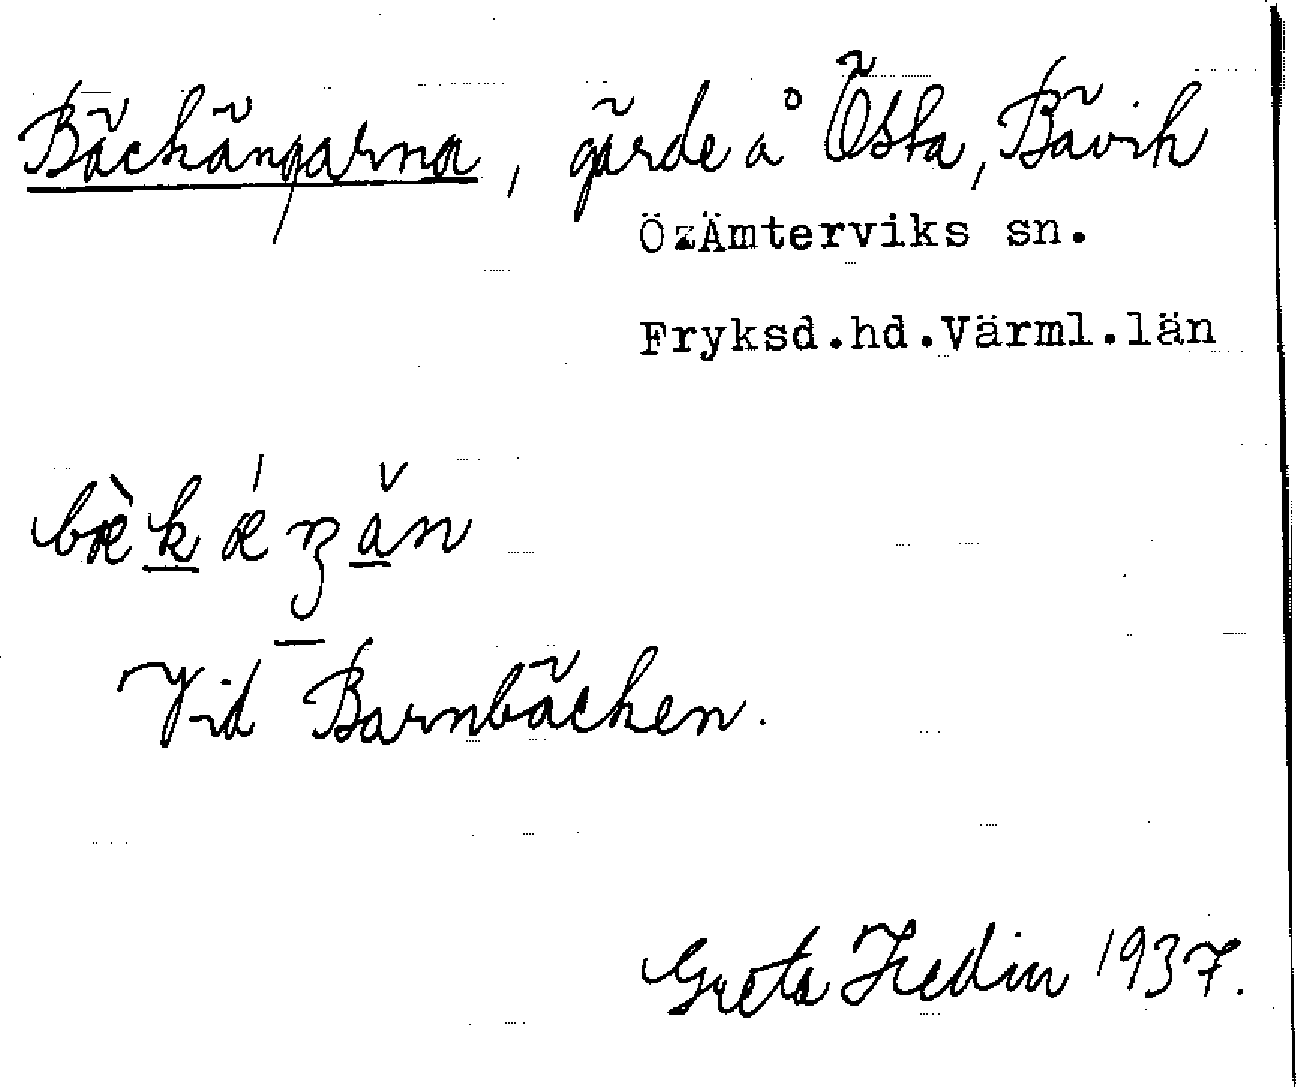 Bäckängarna, gärde å Östa, Bävik
ÖzÄmterviks sn.
Fryksd.hd.Värml.län
Vid Barnbäcken.
Greta Hedin 1937.